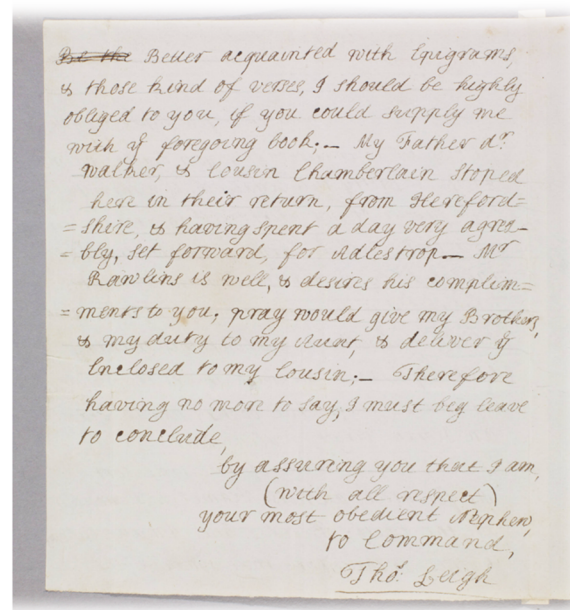 Be the Better acquainted with Epigrams,
& those kind of verses, I should be highly
obliged to you, if you could supply me
with yͤ foregoing book;— My Father dͬ.
Walker, & Cousin Chamberlain stoped
here in their return, from Hereford=
=shire, & having spent a day very agrea=
=bly, set forward, for Adlestrop— Mͬ
Rawlins is well, & desires his complim=
=ments to you; pray would give my Brothers,
& my duty to my Aunt, & deliver yͤ
Enclosed to my Cousin;— Therefore
having no more to say, I must beg leave
to conclude,
by assuring you that I am,
(with all respect)
your most obedient Nephew,
to Command,
Thoˢ. Leigh